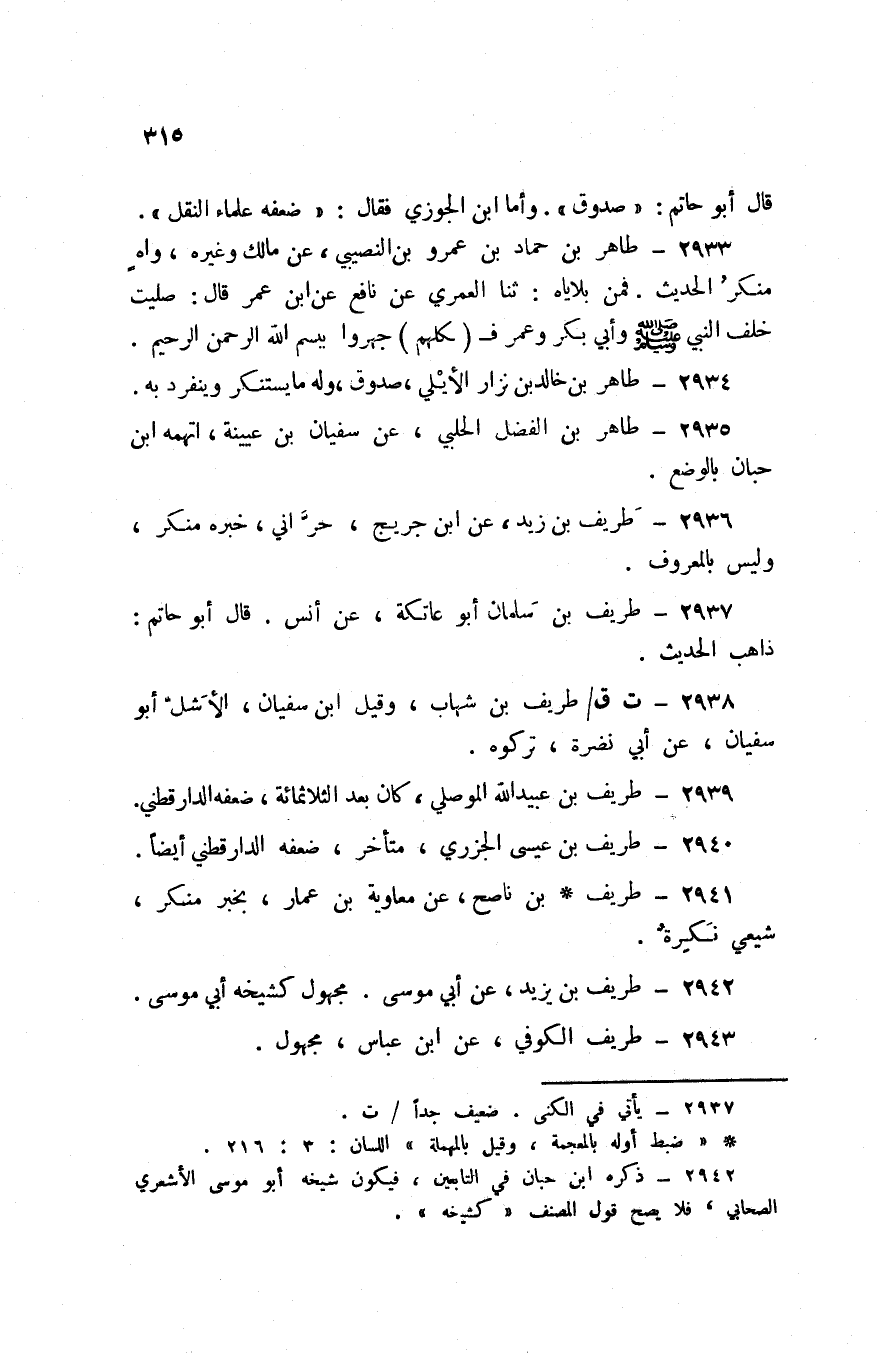 ٣١٥
قال أبو حاتم : « صدوق » . وأما ابن الجوزي فقال : « ضعفه علماء النقل » .
٢٩٣٣ – طاهر بن حماد بن عمرو بن النصيبي ، عن مالك وغيره ، واهٍ
منكرُ الحديث . فمن بلاياه : ثنا العمري عن نافع عن ابن عمر قال : صليت
خلف النبي ﷺ وأبي بكر وعمر فـ ( كلهم ) جهروا ببسم الله الرحمن الرحيم .
٢٩٣٤ – طاهر بن خالد بن نزار الأيْلي ، صدوق ، وله ما يستنكر وينفرد به .
٢٩٣٥ – طاهر بن الفضل الحلبي ، عن سفيان بن عيينة ، اتهمه ابن
حبان بالوضع .
٢٩٣٦ – طَريف بن زيد ، عن ابن جريج ، حرَّاني ، خبره منكر ،
وليس بالمعروف .
٢٩٣٧ – طريف بن سَلمان أبو عاتكة ، عن أنس . قال أبو حاتم :
ذاهب الحديث .
٢٩٣٨ – ت ق/ طريف بن شهاب ، وقيل ابن سفيان ، الأَشلّ أبو
سفيان ، عن أبي نضرة ، تركوه .
٢٩٣٩ – طريف بن عبيدالله الموصلي ، كان بعد الثلاثمائة ، ضعفه الدارقطني .
٢٩٤٠ – طريف بن عيسى الجزري ، متأخر ، ضعفه الدارقطني أيضاً .
٢٩٤١ – طريف * بن ناصح ، عن معاوية بن عمار ، بخبر منكر ،
شيعي نَكِيرةٌ .
٢٩٤٢ – طريف بن يزيد ، عن أبي موسى . مجهول كشيخه أبي موسى .
٢٩٤٣ – طريف الكوفي ، عن ابن عباس ، مجهول .
٢٩٣٧ – يأتي في الكنى . ضعيف جداً / ت .
* « ضبط أوله بالمعجمة ، وقيل بالمهملة » اللسان : ٣ : ٢١٦ .
٢٩٤٢ – ذكره ابن حبان في التابعين ، فيكون شيخه أبو موسى الأشعري
الصحابي ، فلا يصح قول المصنف « كشيخه » .